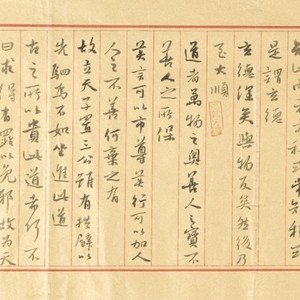 是謂玄德
玄德深矣與物反矣然後乃
至大順
道者萬物之奧善人之寶不
善人之所保
美言可以市尊美行可以加人
人之不善何棄之有
故立天子置三公雖有拱璧以
先駟馬不如坐進此道
古之所以貴此道者何不
曰求得者罪以免邪故為天